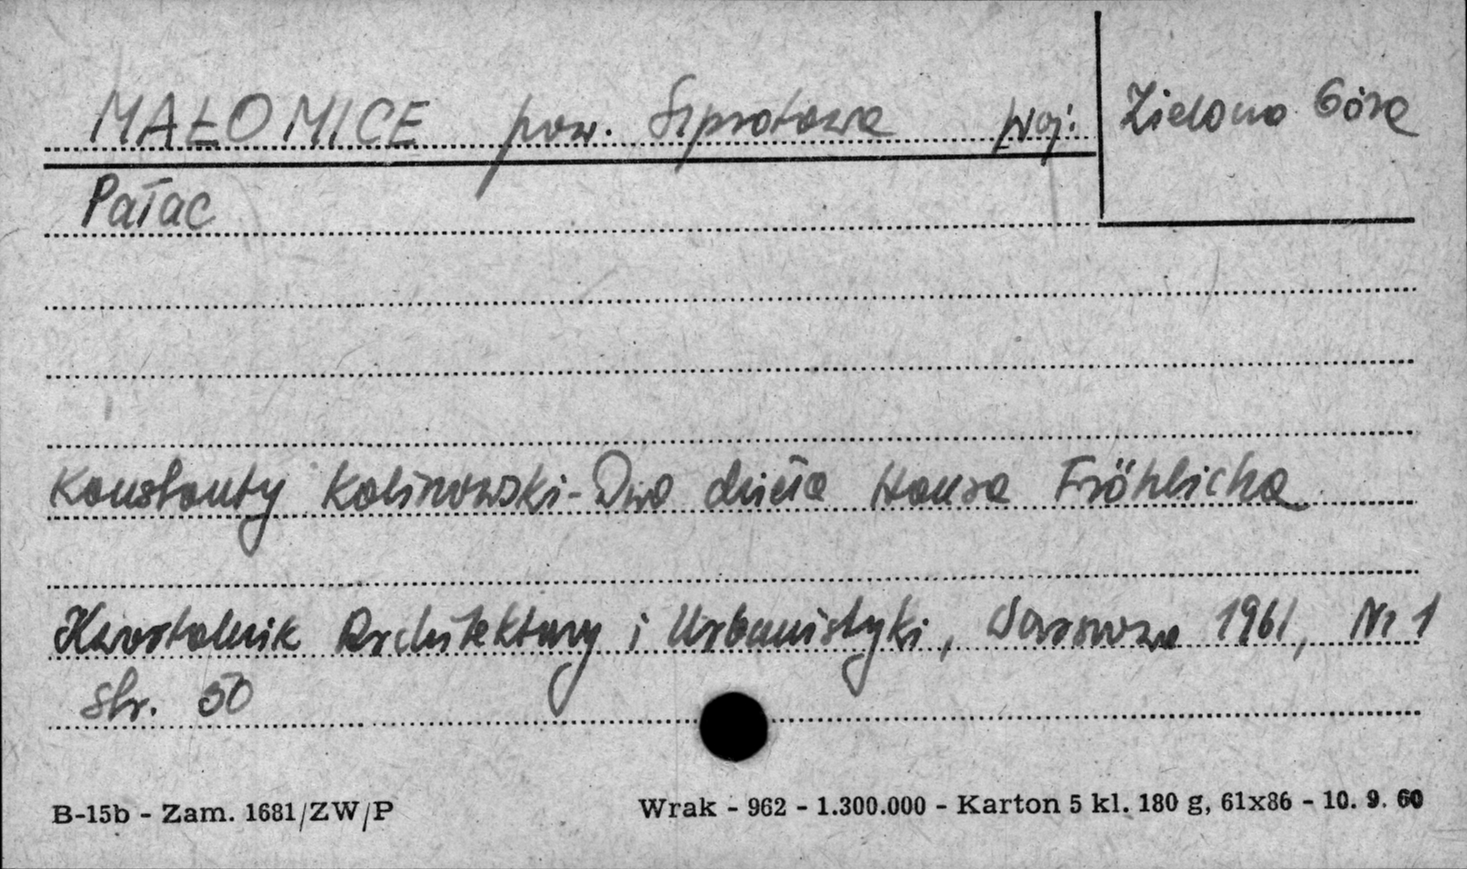 MAŁOMICE pow. Szprotawa woj. Zielona Góra
Pałac
Konstanty Kalinowski - Dwa dzieła Hansa Fröhlicha
Kwartalnik Architektury i Urbanistyki, Warszawa 1961, Nr 1
str. 50
B-15b - Zam. 1681/ZW/P Wrak - 962 - 1.300.000 - Karton 5 kl. 180 g, 61x86 - 10. 9. 60